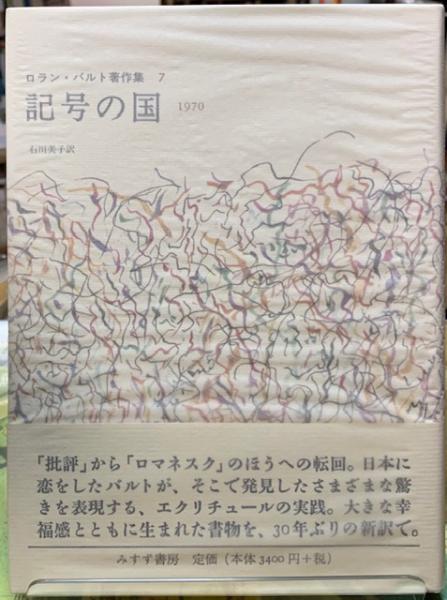 ロラン・バルト著作集 7
記号の国 1970
石川美子訳
「批評」から「ロマネスク」のほうへの転回。日本に
恋をしたバルトが、そこで発見したさまざまな驚
きを表現する、エクリチュールの実践。大きな幸
福感とともに生まれた書物を、30年ぶりの新訳で。
みすず書房 定価（本体3400円+税）